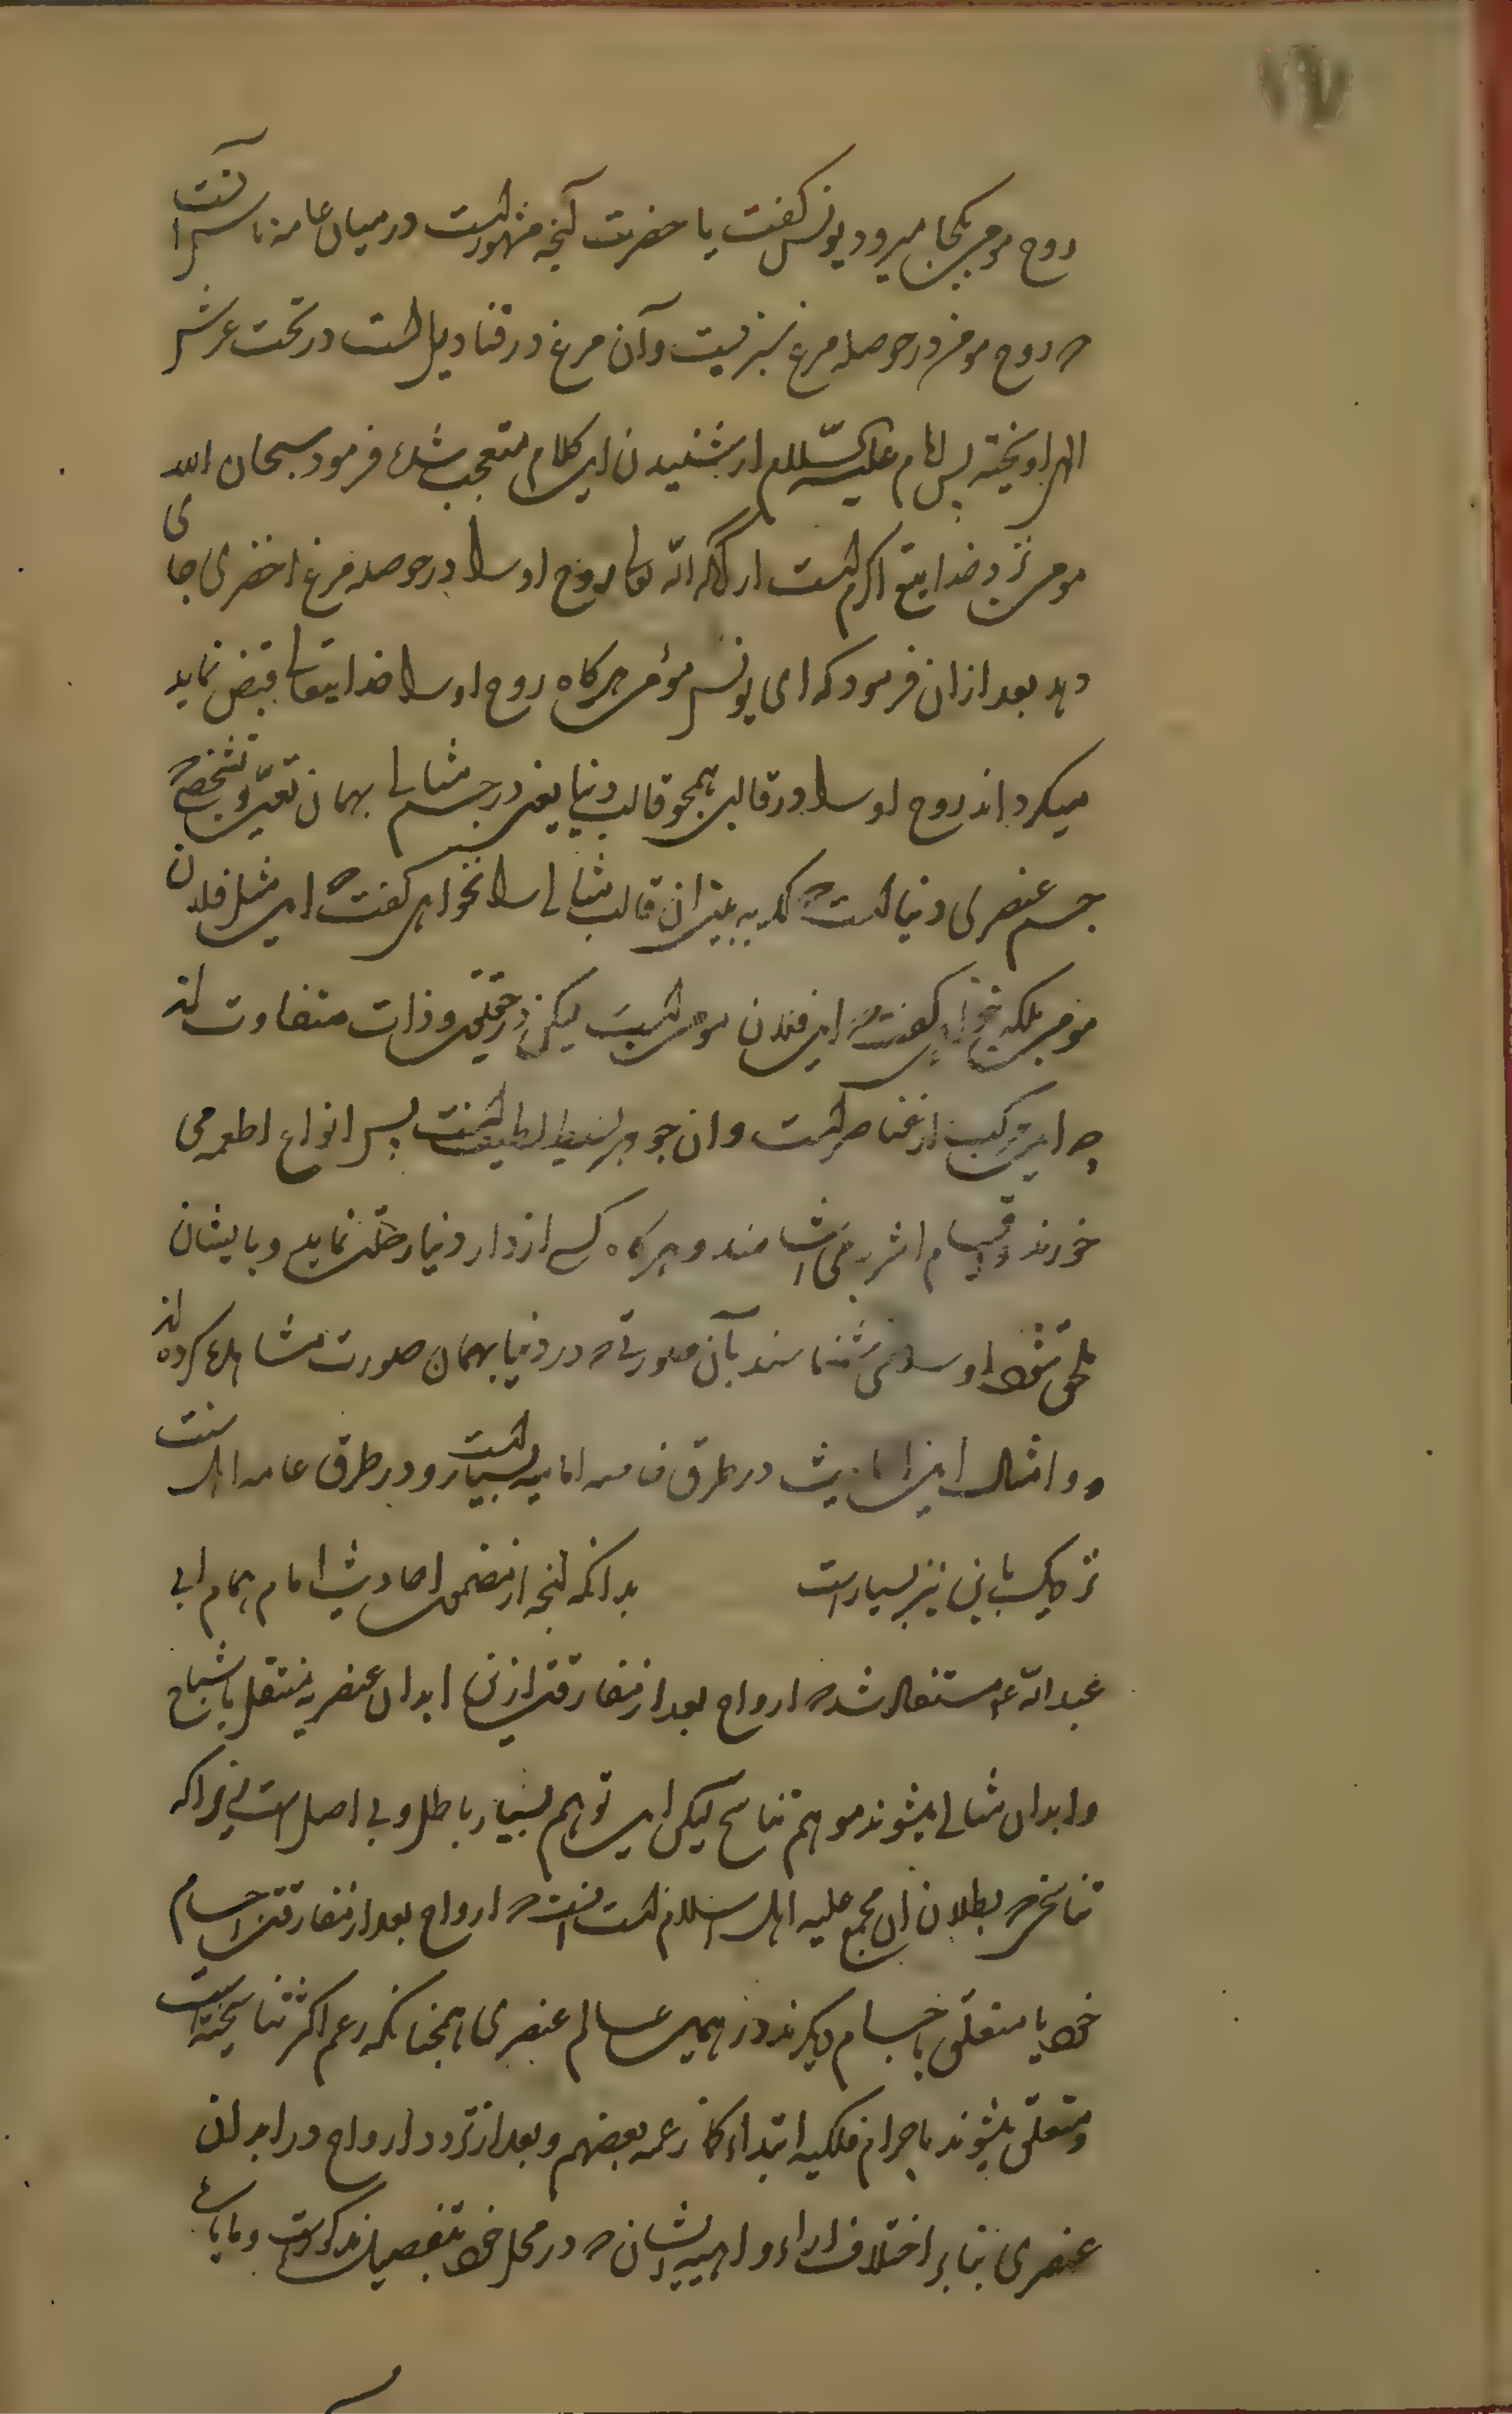 ۱۷
روح مومن بکجا میرود یونس کفت یا حضرت آنچه مشهور است درمیان عامه ناس آنست
که روح مومن در حوصله مرغ سبزیست وآن مرغ در قنادیل است درتحت عرش
الهی اویخته پس امام علیه السّلام از شنیدن این کلام متعجب شده فرمود سبحان الله
مومن نزد خدایتع اکرم است از آنکه الله تعالی روح او را در حوصله مرغ اخضری جای
دهد بعد ازان فرمود که ای یونس مؤمن هرکاه روح او را خدایتعالی قبض نماید
میکرداند روح او را در قالبی همچو قالب دنیا یعنی در جسم مثالی بهمان تعیّن وتشخص که
جسم عنصری دنیا است که به بینی ان قالب مثالی را نخواهی کفت که این مثل فلان
مومن بلکه خواهی کفت که این فلان مومن است لیکن در حقیقت وذات متفاوت اند
چه این مرکب از عناصر است وان جوهر بسیط لطیف است پس انواع اطعمه می
خورند واقسام اشربه می اشامند و هرکاه کسی از دار دنیا رحلت نماید وبایشان
ملحق شود او را می شناسند بآن صورتی که در دنیا بهمان صورت مشاهده کرده اند
و امثال این احادیث در طرق خاصه امامیه بسیار است ودر طرق عامه اهل سنت
نزدیک باین نیز بسیار است بدانکه آنچه از مضمون احادیث امام همام ابی
عبدالله ع مستفاد شد که ارواح بعد از مفارقت ازین ابدان عنصریه منتقل باشباح
وابدان مثالی میشوند موهم تناسخ لیکن این توهم بسیار باطل وبی اصل است زیراکه
تناسخی که بطلان ان مجمع علیه اهل اسلام است انست که ارواح بعد از مفارقت اجسام
خود یا متعلق باجسام دیکرند در همین عالم عنصری همچنانکه زعم اکثر تناسخیه است
ومتعلق میشوند باجرام فلکیه ابتداء کما زعمه بعضهم وبعد از تردد ارواح در ابدان
عنصری بنابر اختلاف اراء واهیه ایشان که در محل خود بتفصیل مذکور است و